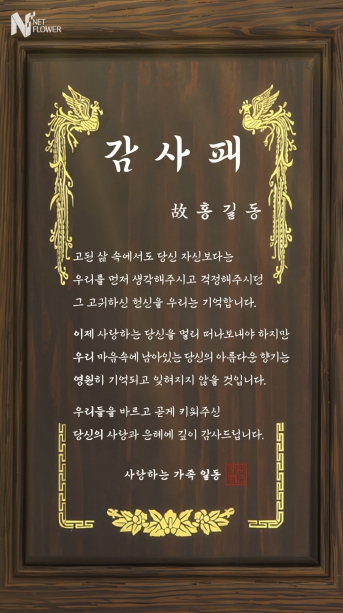 NET
FLOWER
감사패
故 홍길동
고된 삶 속에서도 당신 자신보다는
우리를 먼저 생각해주시고 걱정해주시던
그 고귀하신 헌신을 우리는 기억합니다.
이제 사랑하는 당신을 멀리 떠나보내야 하지만
우리 마음속에 남아있는 당신의 아름다운 향기는
영원히 기억되고 잊혀지지 않을 것입니다.
우리들을 바르고 곧게 키워주신
당신의 사랑과 은혜에 깊이 감사드립니다.
사랑하는 가족 일동